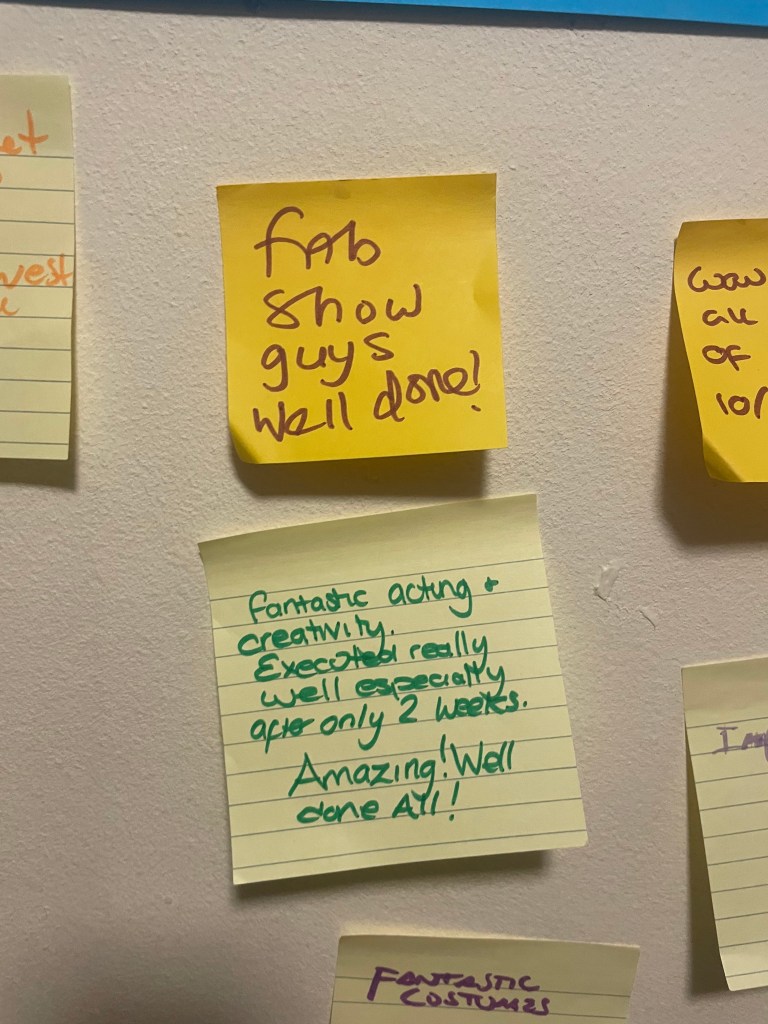 fAb
show
guys
well done!
fantastic acting +
creativity.
Executed really
well especially
after only 2 weeks.
Amazing! Well
done All!
FANTASTIC
COSTUMES
wow
all
of
10/